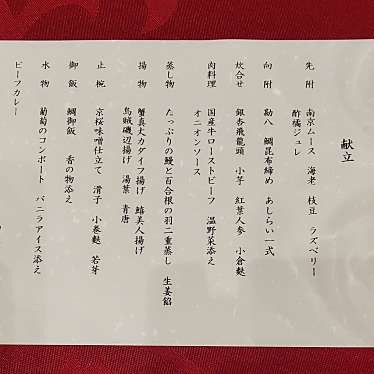 献立
先附 南京ムース 海老 枝豆 ラズベリー
酢橘ジュレ
向附 勘八 鯛昆布締め あしらい一式
炊合せ 銀杏飛龍頭 小芋 紅葉人参 小倉麩
肉料理 国産牛ローストビーフ 温野菜添え
オニオンソース
蒸し物 たっぷりの鰻と百合根の羽二重蒸し 生姜餡
揚物 蟹真丈カダイフ揚げ 鱚美人揚げ
烏賊磯辺揚げ 湯葉 青唐
止椀 京桜味噌仕立て 滑子 小巻麩 若芽
御飯 鯛御飯 香の物添え
水物 葡萄のコンポート バニラアイス添え
ビーフカレー